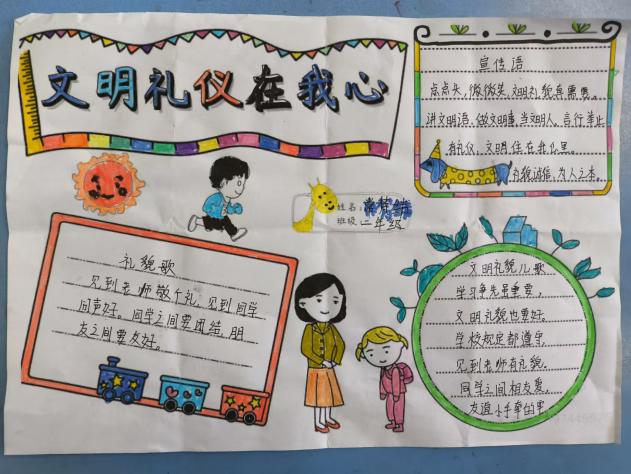 文明礼仪在我心
宣传语
点点头,微微笑,文明礼貌真需要。
讲文明语,做文明事,当文明人,言行举止
有礼仪,文明住在我心里。
礼貌诚信,为人之本。
姓名:
班级:二年级
礼貌歌
见到老师敬个礼,见到同学
问声好。同学之间要团结,朋
友之间要友好。
文明礼貌儿歌
学习争先虽重要,
文明礼貌也要好。
学校规定都遵守,
见到老师有礼貌。
同学之间相友爱,
友谊小手牵的牢